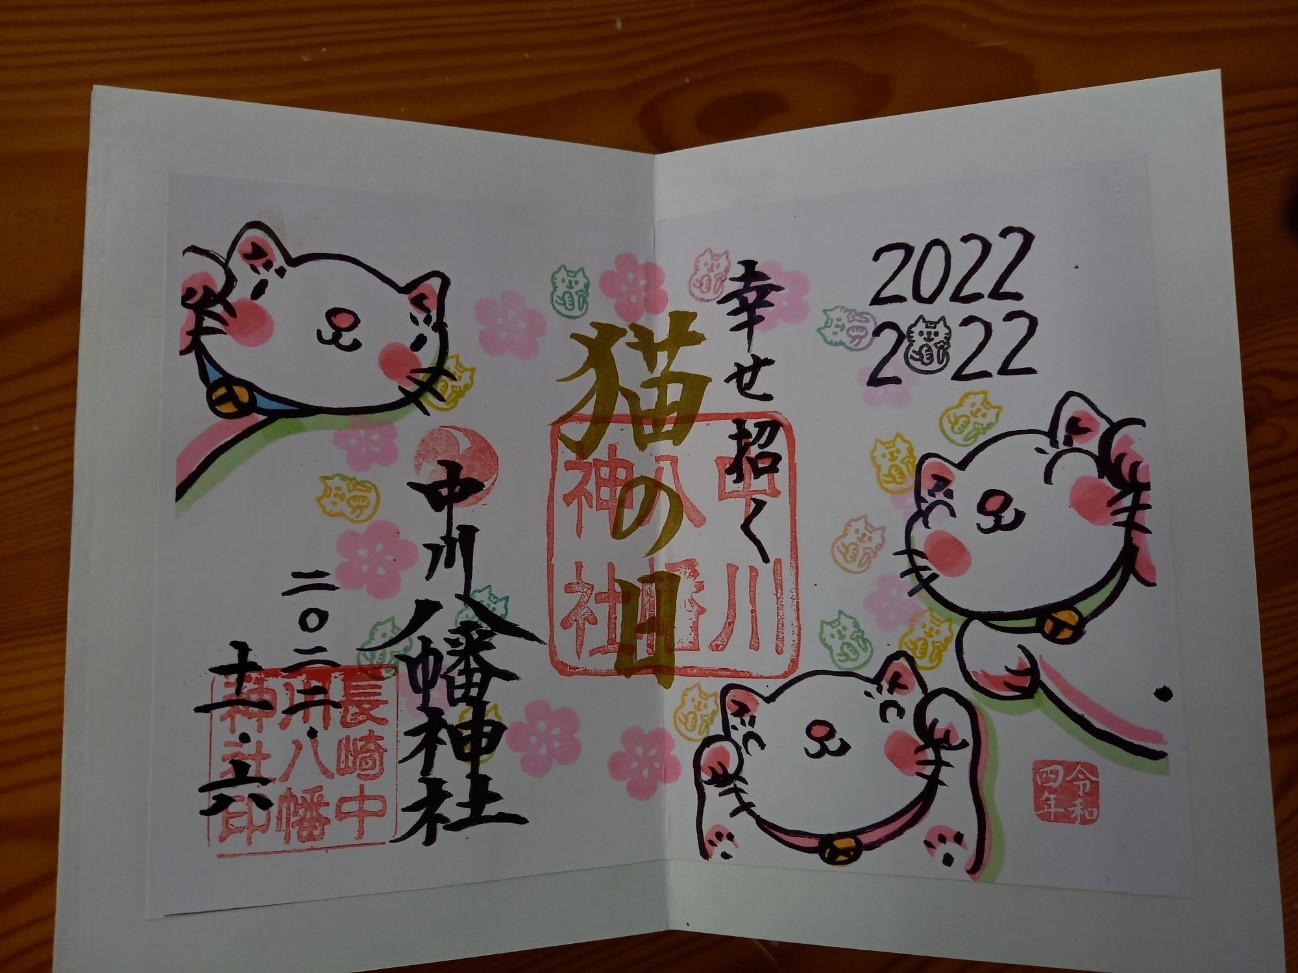 2022
2 22
幸せ招く
猫の日
中川
八幡
神社
中川八幡神社
二〇二二.
十一.六
長崎中
川八幡
神社印
令和
四年